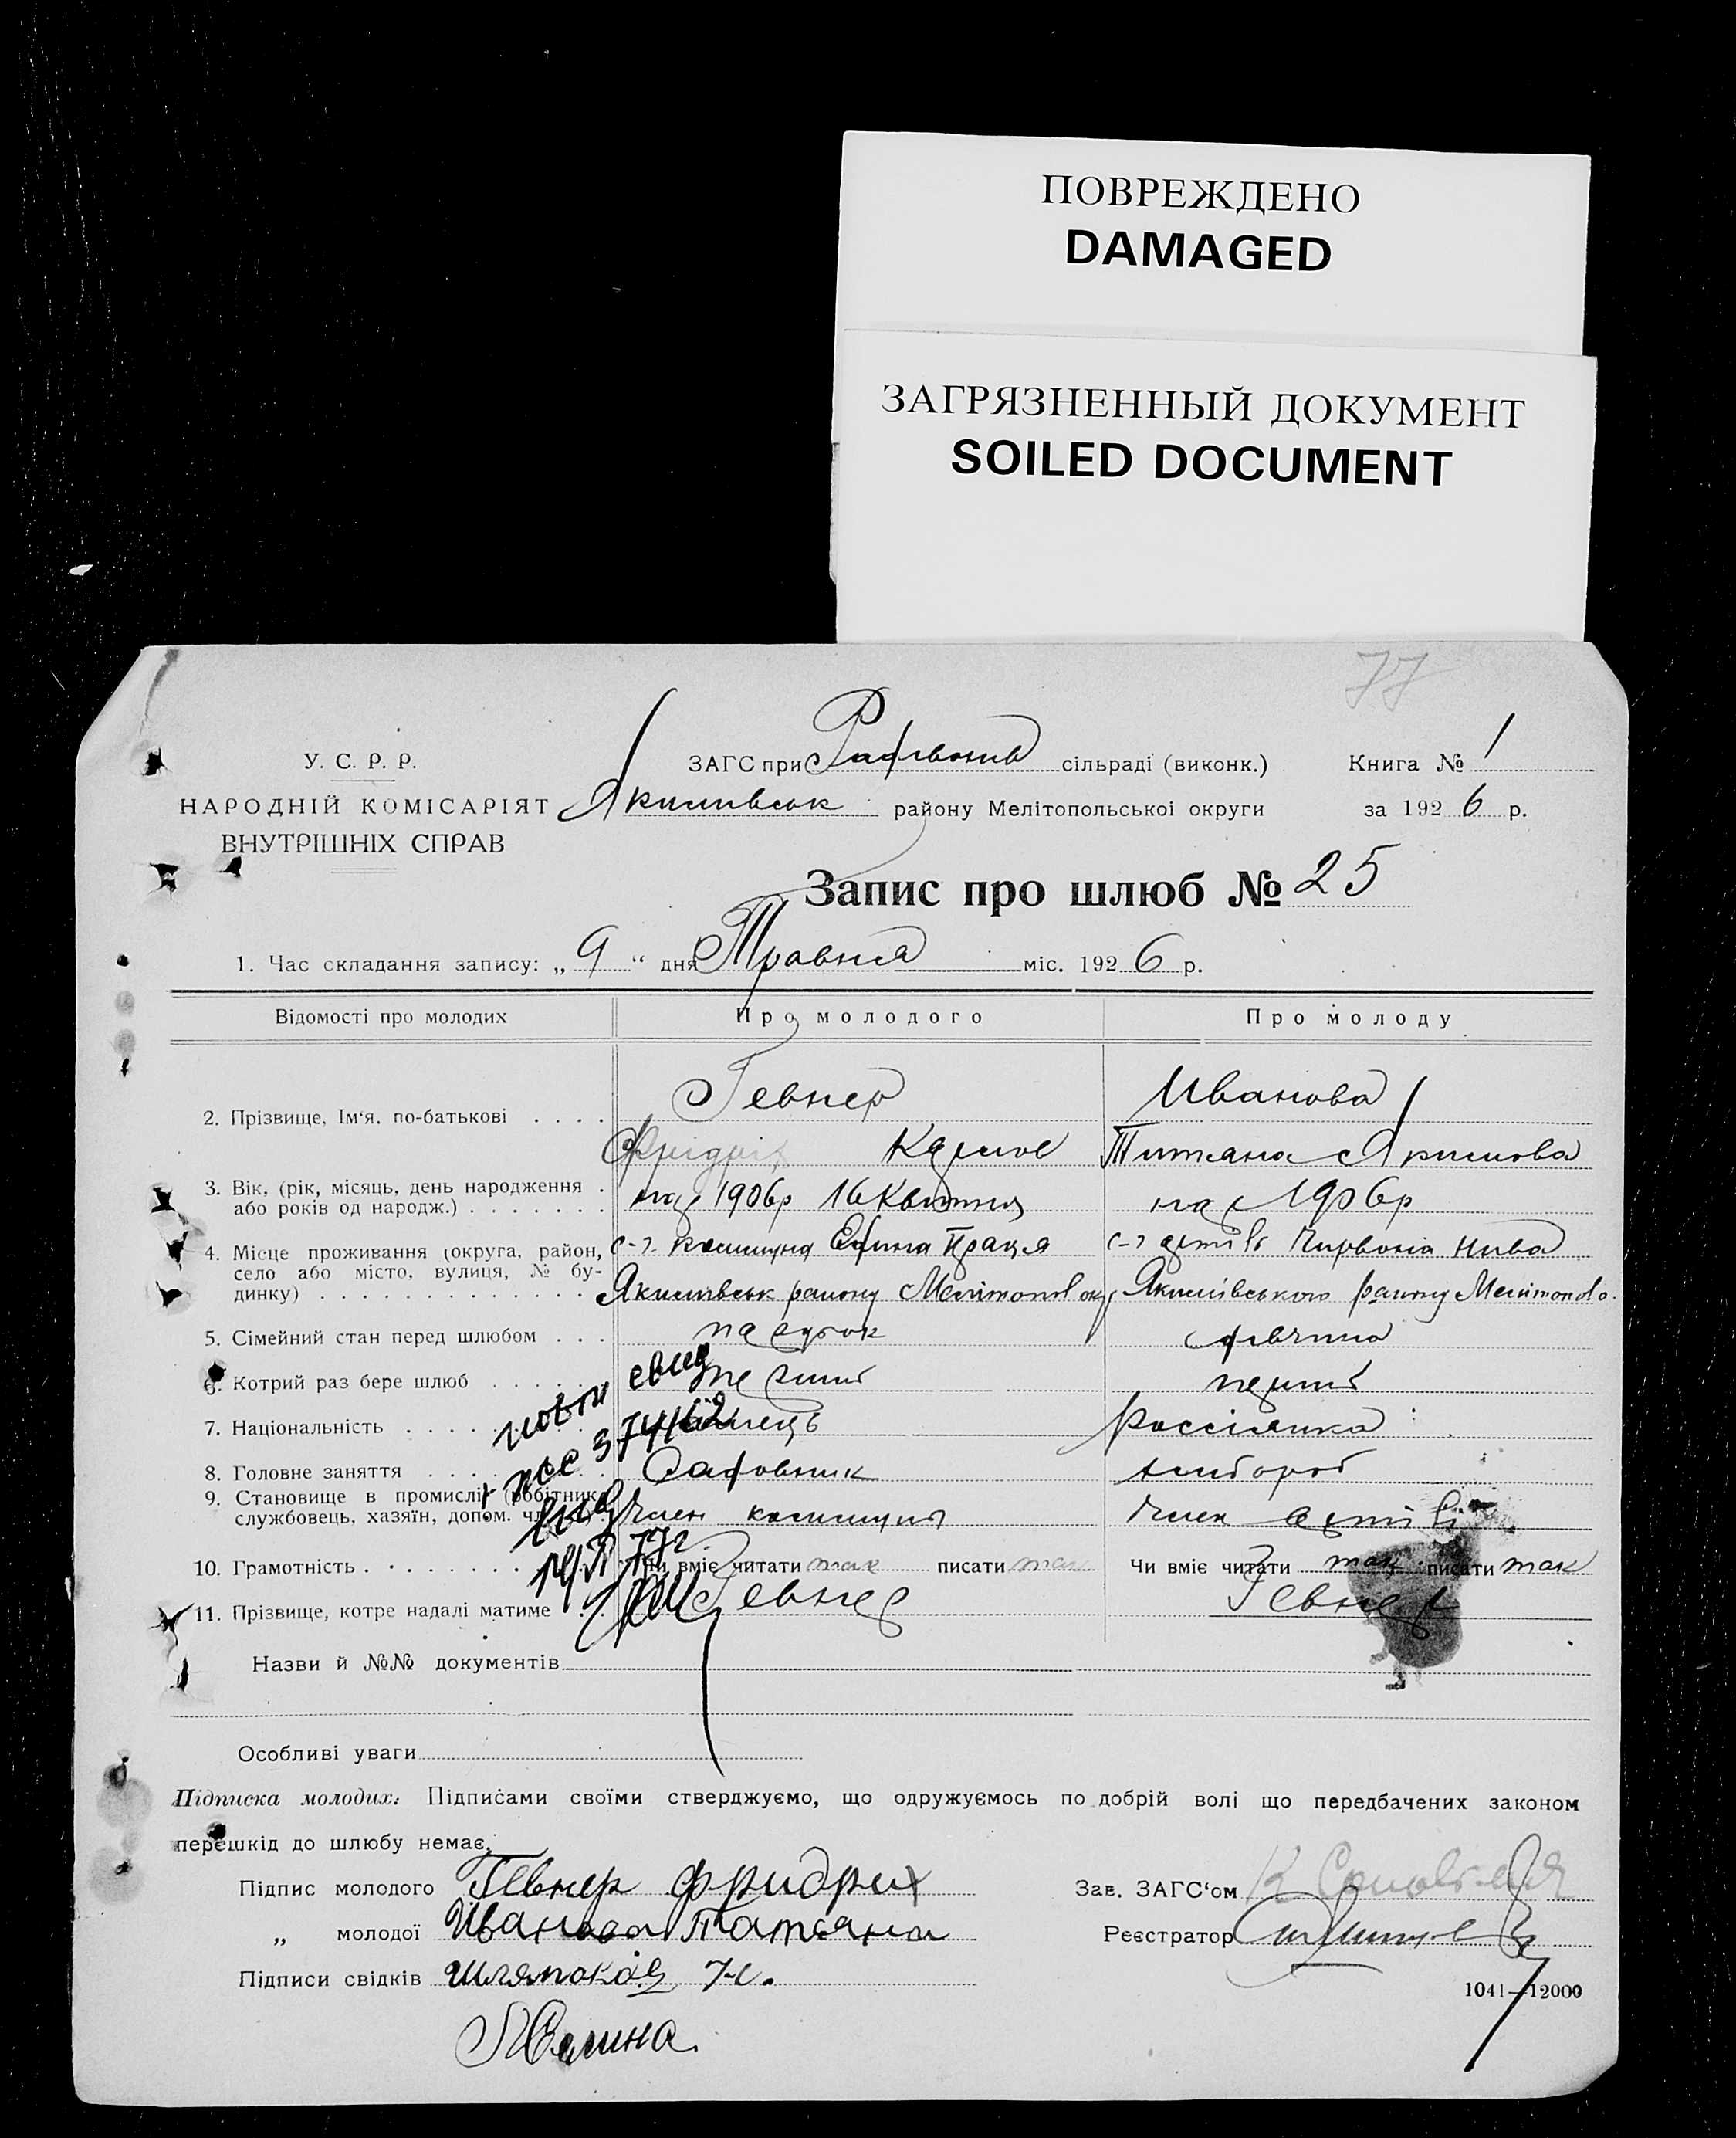 ПОВРЕЖДЕНО
DAMAGED
ЗАГРЯЗНЕННЫЙ ДОКУМЕНТ
SOILED DOCUMENT
77
У. С. Р. Р.
НАРОДНІЙ КОМІСАРІЯТ
ВНУТРІШНІХ СПРАВ
ЗАГС при сільраді (виконк.) Книга № 1
Якимівськ району Мелітопольськоі округи за 1926 р.
Запис про шлюб № 25
1. Час складання запису: „ 9 “ дня Травня міс. 1926 р.
Відомості про молодих Про молодого Про молоду
2. Прізвище, Ім‘я, по-батькові . . . . Гевнер Иванова
Фрідріх Титяна Якимова
3. Вік, (рік, місяць, день народження .
або років од народж.) . . . . . . . 1906р 16 Квітня 1906р
4. Місце проживання (округа, район, с-г. коммуна Єдина Праця с-г артіль Червонія Нива
село або місто, вулиця, № бу-
динку) . . . . . . . . . . . . . Якимівськ району Мелітопол окр Якимівського району Мелітопол о.
5. Сімейний стан перед шлюбом . . . парубок дівчина
6. Котрий раз бере шлюб . . . . .
7. Національність . . . . німець Россіянка
8. Головне заняття . . . . Садовник хлібороб
9. Становище в промислі (робітник,
службовець, хазяїн, допом. чл. Член коммуни Член артілі
10. Грамотність . . . . . . . Чи вміє читати так писати так Чи вміє читати так писати так
11. Прізвище, котре надалі матиме . . . Гевнер Гевнер
Назви й №№ документів
Особливі уваги
Підписка молодих: Підписами своїми стверджуємо, що одружуємось по добрій волі що передбачених законом
перешкід до шлюбу немає.
Підпис молодого Гевнер Фридрих Зав. ЗАГС‘ом
„ молодої Иванова Татяна Реєстратор
Підписи свідків
1041—12000